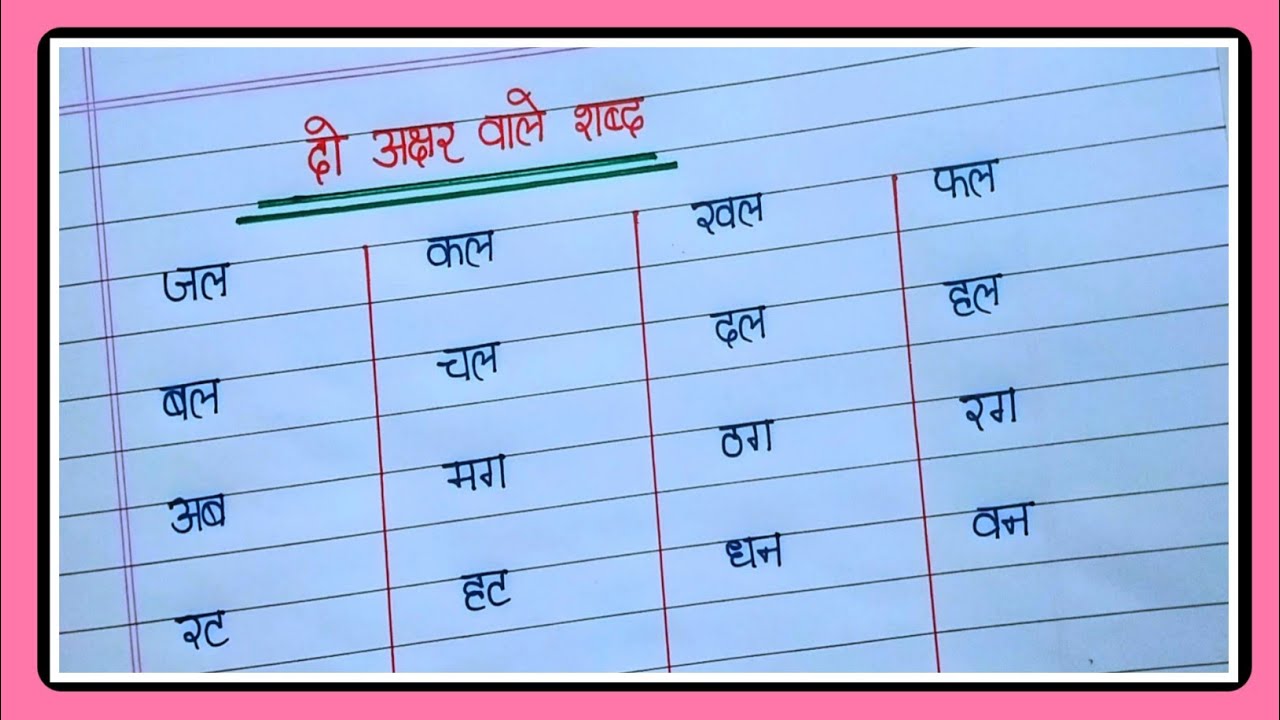 दो अक्षर वाले शब्द
जल कल खल फल
बल चल दल हल
अब मग ठग रग
रट हट धन वन